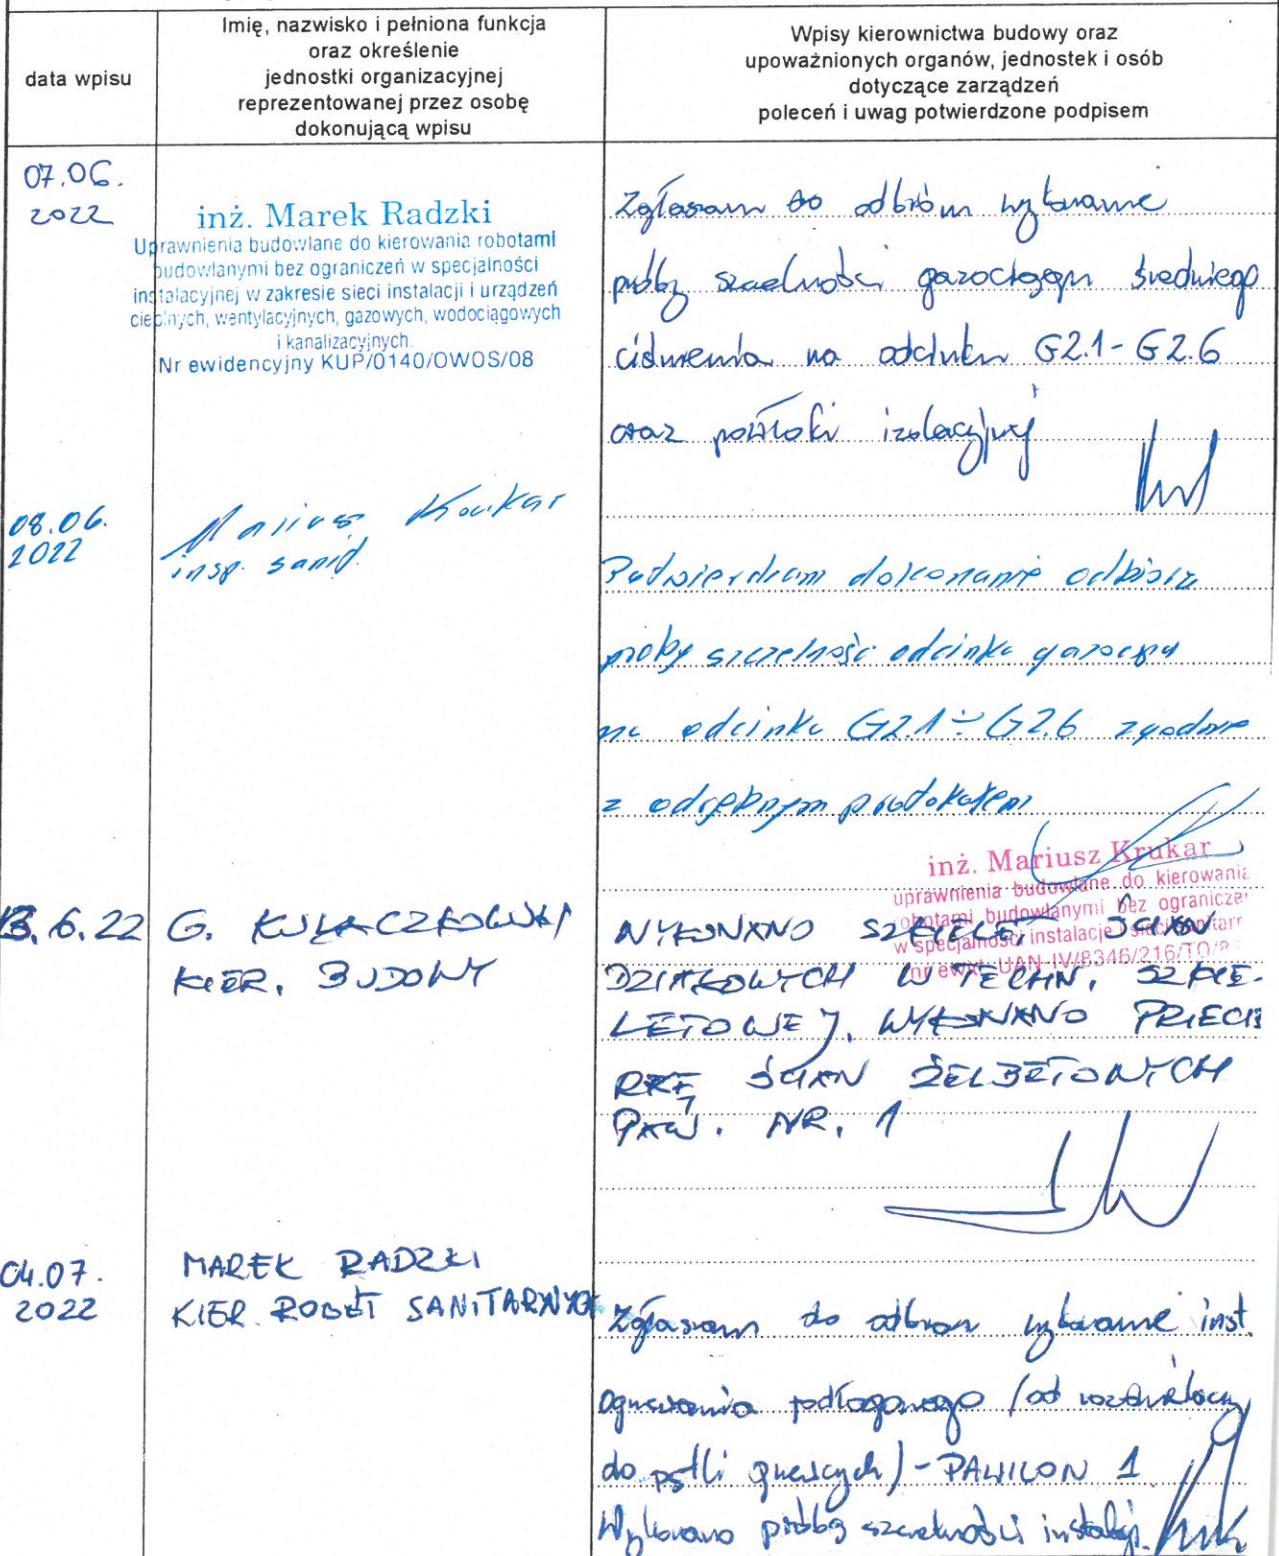 data wpisu
Imię, nazwisko i pełniona funkcja
oraz określenie
jednostki organizacyjnej
reprezentowanej przez osobę
dokonującą wpisu
Wpisy kierownictwa budowy oraz
upoważnionych organów, jednostek i osób
dotyczące zarządzeń
poleceń i uwag potwierdzone podpisem
07.06.
2022
inż. Marek Radzki
Uprawnienia budowlane do kierowania robotami
budowlanymi bez ograniczeń w specjalności
instalacyjnej w zakresie sieci instalacji i urządzeń
cieplnych, wentylacyjnych, gazowych, wodociągowych
i kanalizacyjnych.
Nr ewidencyjny KUP/0140/OWOS/08
Zgłaszam do odbioru wykonanie
próby szczelności gazociągu średniego
ciśnienia na odcinku G2.1-G2.6
oraz powłoki izolacyjnej
08.06.
2022
Mariusz Krukar
insp. sanit.
Potwierdzam dokonanie odbioru
próby szczelności odcinka gazociągu
na odcinku G2.1÷G2.6 zgodnie
z odrębnym protokołem
inż. Mariusz Krukar
uprawnienia budowlane do kierowania
robotami budowlanymi bez ograniczeń
w specjalności instalacje i sieci sanitarn
nr ewid. UAN-IV/8346/216/TO/8
13.6.22
G. KUŁACZKOWSKI
KIER. BUDOWY
WYKONANO SZKIELET ŚCIAN
DZIAŁOWYCH W TECHN. SZKIE-
LETOWEJ. WYKONANO PRZECIE
RKĘ ŚCIAN ŻELBETOWYCH
PAW. NR. 1
04.07.
2022
MAREK RADZKI
KIER. ROBÓT SANITARNYCH
Zgłaszam do odbioru wykonanie inst.
ogrzewania podłogowego (od rozdzielaczy
do pętli grzewczych) - PAWILON 1
Wykonano próbę szczelności instalacji.